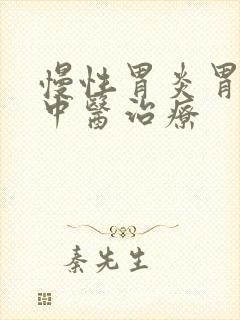 慢性胃炎胃
中醫治療
秦先生